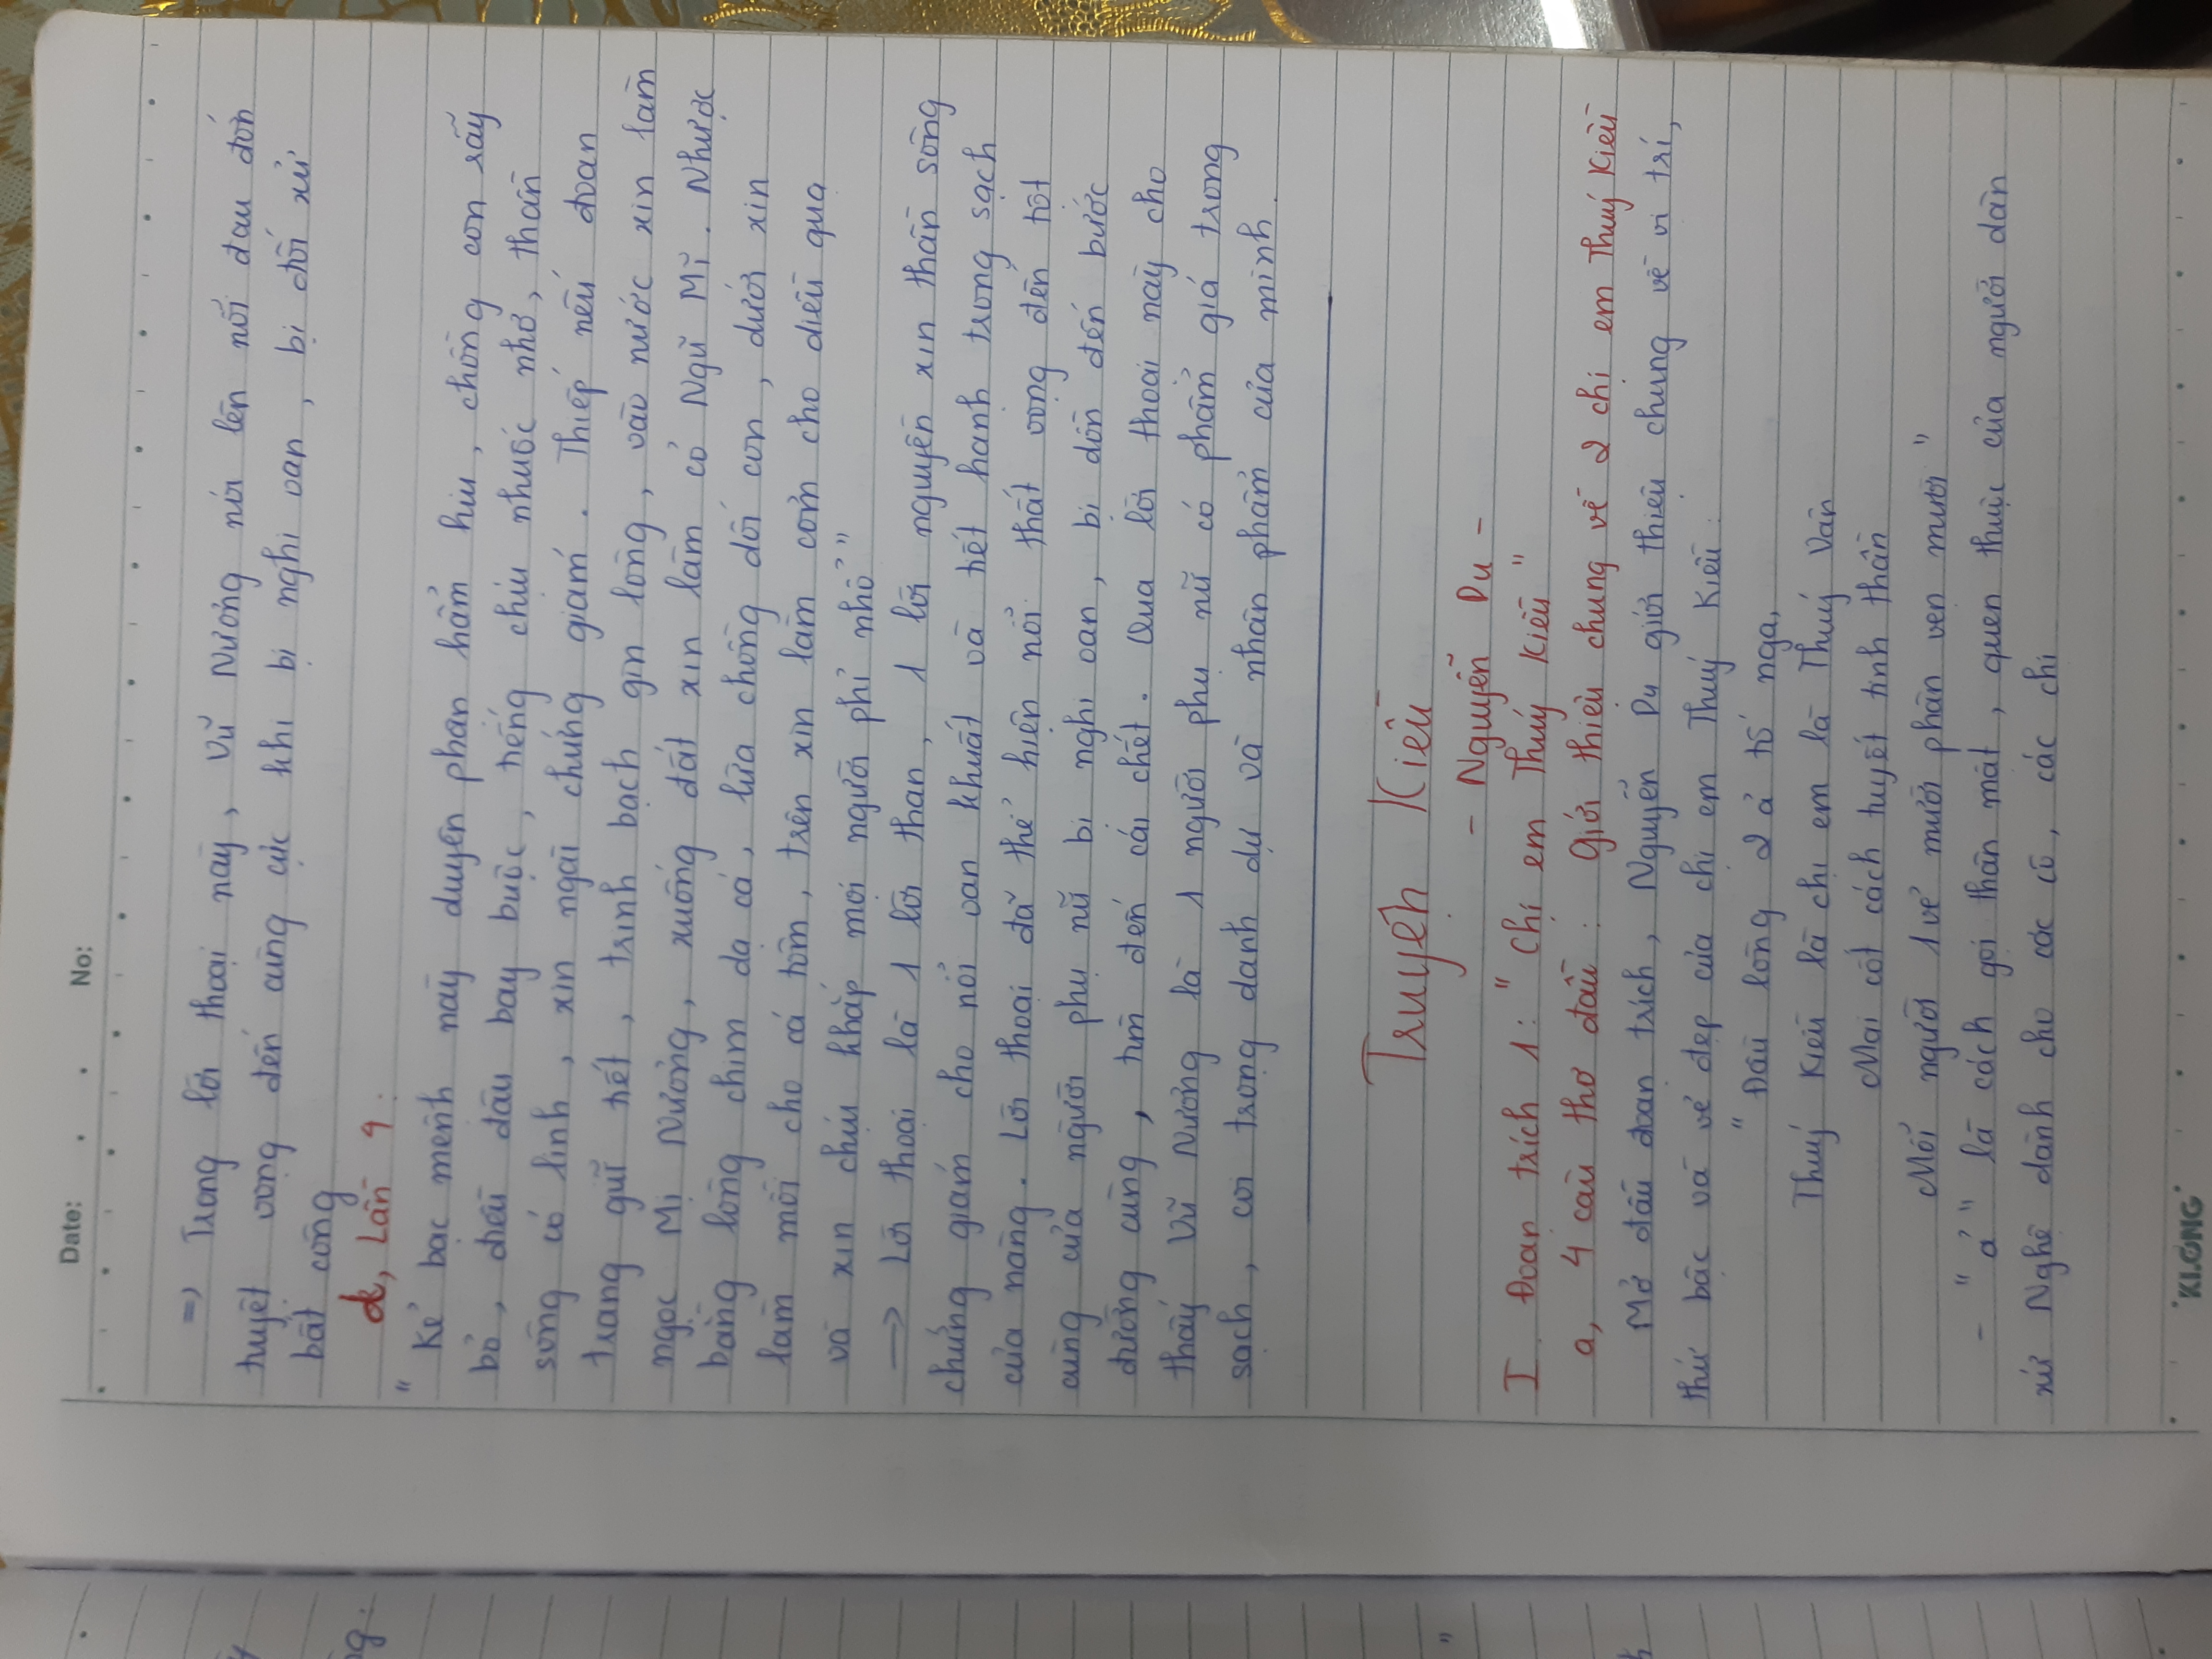 Date: . . No:
=> Trong lời thoại này, Vũ Nương nói lên nỗi đau đớn
tuyệt vọng đến cùng cực khi bị nghi oan, bị đối xử
bất công
d, Lần 4:
" Kẻ bạc mệnh này duyên phận hẩm hiu, chồng con rẫy
bỏ, điều đâu bay buộc, tiếng chịu nhuốc nhơ, thần
sông có linh, xin ngài chứng giám. Thiếp nếu đoan
trang giữ tiết, trinh bạch gìn lòng, vào nước xin làm
ngọc Mị Nương, xuống đất xin làm cỏ Ngu Mĩ. Nhược
bằng lòng chim dạ cá, lừa chồng dối con, dưới xin
làm mồi cho cá tôm, trên xin làm cơm cho diều quạ
và xin chịu khắp mọi người phỉ nhổ "
→ Lời thoại là 1 lời than, 1 lời nguyền xin thần sông
chứng giám cho nỗi oan khuất và tiết hạnh trong sạch
của nàng. Lời thoại đã thể hiện nỗi thất vọng đến tột
cùng của người phụ nữ bị nghi oan, bị dồn đến bước
đường cùng, tìm đến cái chết. Qua lời thoại này cho
thấy Vũ Nương là 1 người phụ nữ có phẩm giá trong
sạch, coi trọng danh dự và nhân phẩm của mình.
Truyện Kiều
- Nguyễn Du -
I. Đoạn trích 1: " Chị em Thuý Kiều "
a, 4 câu thơ đầu: Giới thiệu chung về 2 chị em Thuý Kiều
Mở đầu đoạn trích, Nguyễn Du giới thiệu chung về vị trí,
thứ bậc và vẻ đẹp của chị em Thuý Kiều:
" Đầu lòng 2 ả tố nga,
Thuý Kiều là chị em là Thuý Vân
Mai cốt cách tuyết tinh thần
Mỗi người 1 vẻ mười phân vẹn mười "
- " ả " là cách gọi thân mật, quen thuộc của người dân
xứ Nghệ dành cho các cô, các chị
KLONG